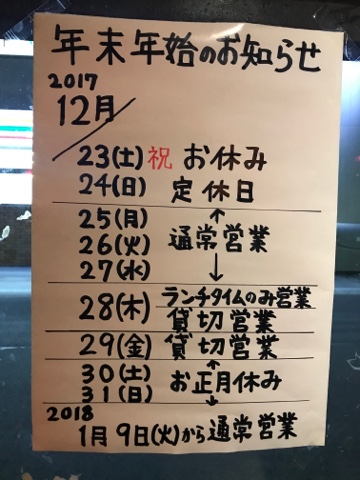 年末年始のお知らせ
2017
12月
23(土) 祝 お休み
24(日) 定休日
25(月) ↑
26(火) 通常営業
27(水) ↓
28(木) ランチタイムのみ営業
貸切営業
29(金) 貸切営業
30(土) ↑
お正月休み
31(日) ↓
2018
1月9日(火)から通常営業